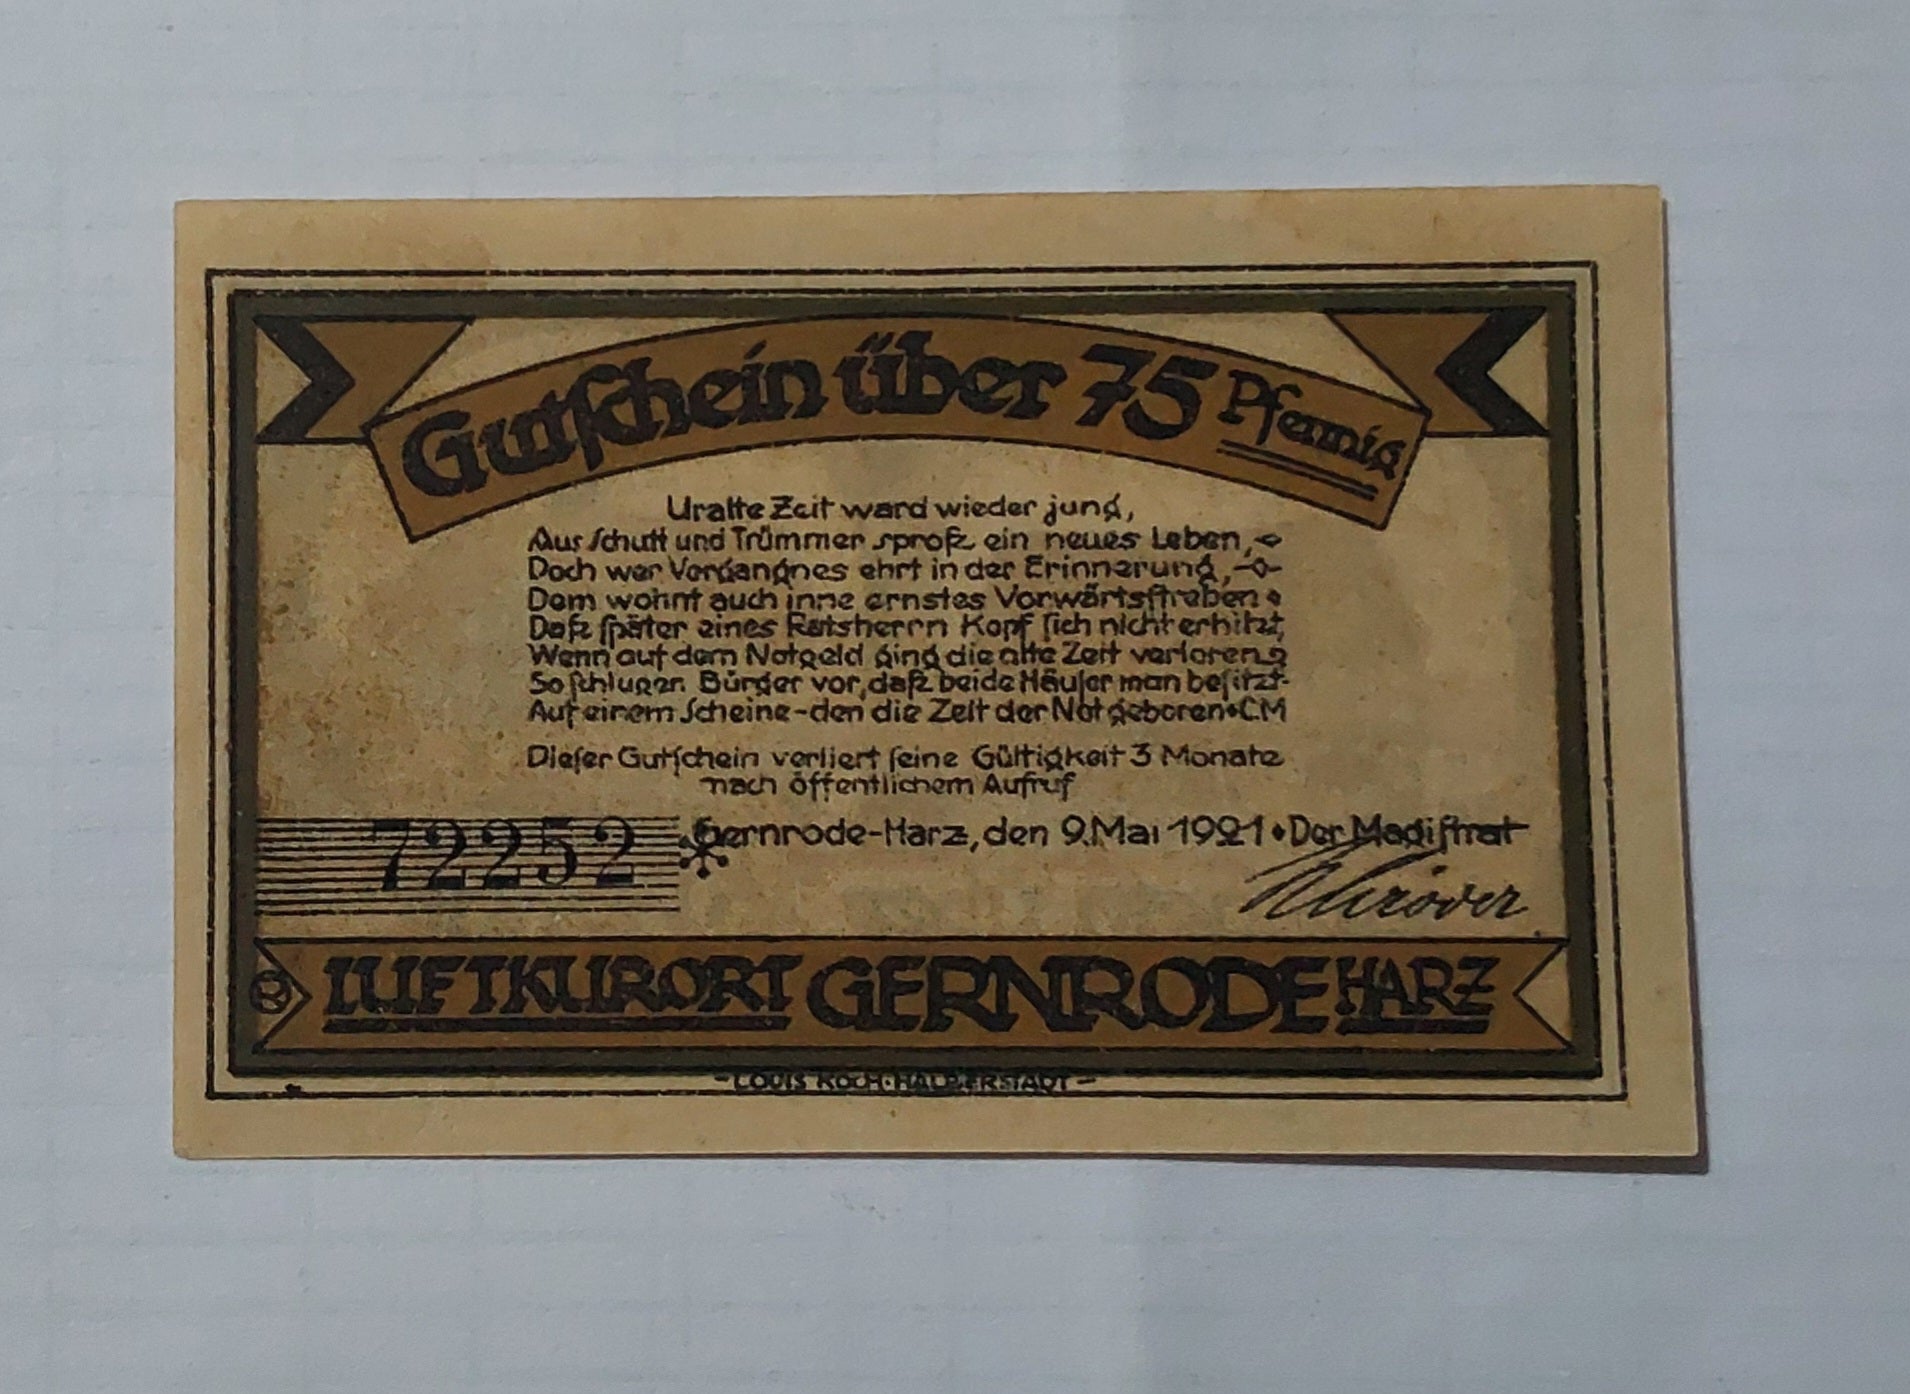 Gutſchein über 75 Pfennig
Uralte Zeit ward wieder jung,
Aus Schutt und Trümmer sproß ein neues Leben,
Doch wer Vergangnes ehrt in der Erinnerung,
Dem wohnt auch inne ernstes Vorwärtsſtreben
Daß ſpäter eines Ratsherrn Kopf ſich nicht erhitzt,
Wenn auf dem Notgeld ging die alte Zeit verloren,
So ſchlugen Bürger vor, daß beide Häuſer man beſitzt
Auf einem Scheine-den die Zeit der Not geboren • CM
Dieſer Gutſchein verliert ſeine Gültigkeit 3 Monate
nach öffentlichem Aufruf
72252
Gernrode-Harz, den 9. Mai 1921 • Der Magiſtrat
LUFTKURORT GERNRODE HARZ
- LOUIS KOCH · HALBERSTADT -